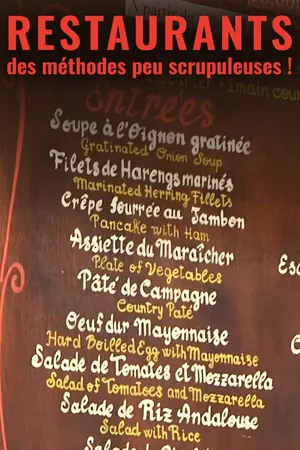 RESTAURANTS
des méthodes peu scrupuleuses !
Entrées
Soupe à l'Oignon gratinée
Gratinated Onion Soup
Filets de Harengs marinés
Marinated Herring Fillets
Crêpe fourrée au Jambon
Pancake with Ham
Assiette du Maraîcher
Plate of Vegetables
Pâté de Campagne
Country Paté
Oeuf dur Mayonnaise
Hard Boilled Egg with Mayonnaise
Salade de Tomates et Mozzarella
Salad of Tomatoes and Mozzarella
Salade de Riz Andalouse
Salad with Rice